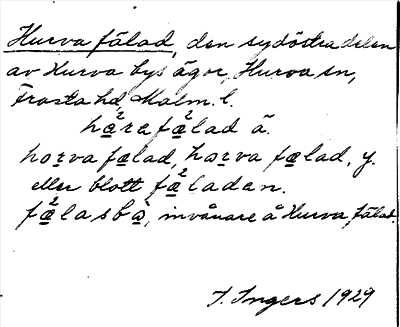 Hurva fälad, den sydöstra delen
av Hurva bys ägor, Hurva sn,
Frosta hd, Malm. l.
hą²rafą²lad ä.
horva fąlad, horva fąlad, y.
eller blott fą²laden.
fą²lasbà, invånare å Hurva fälad.
I. Ingers 1929